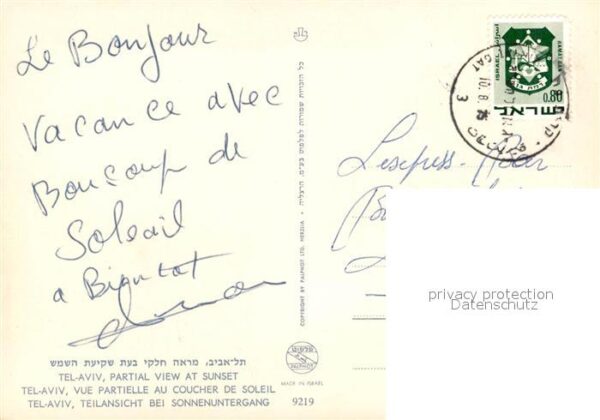 Le Bonjour
Vacance avec
Boucoup de
Soleail
a Bientot
תל-אביב, מראה חלקי בעת שקיעת השמש
TEL-AVIV, PARTIAL VIEW AT SUNSET
TEL-AVIV, VUE PARTIELLE AU COUCHER DE SOLEIL
TEL-AVIV, TEILANSICHT BEI SONNENUNTERGANG
9219
MADE IN ISRAEL
PALPHOT
COPYRIGHT BY PALPHOT LTD. HERZLIA
כל הזכויות שמורות לפלפוט בע"מ, הרצליה
ISRAEL
0.80
ישראל
3
privacy protection
Datenschutz